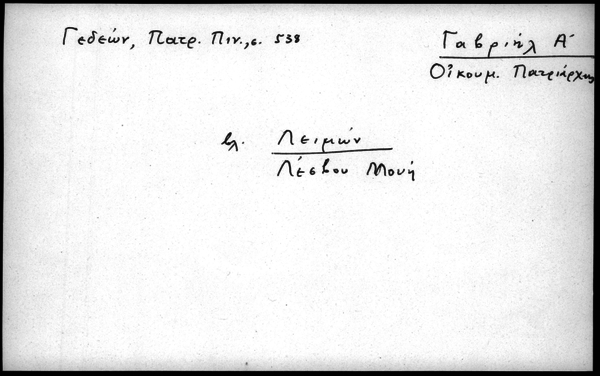 Γεδεών, Πατρ. Πιν., σ. 538
Γαβριήλ Α´
Οἰκουμ. Πατριάρχης
βλ. Λειμών
Λέσβου Μονή